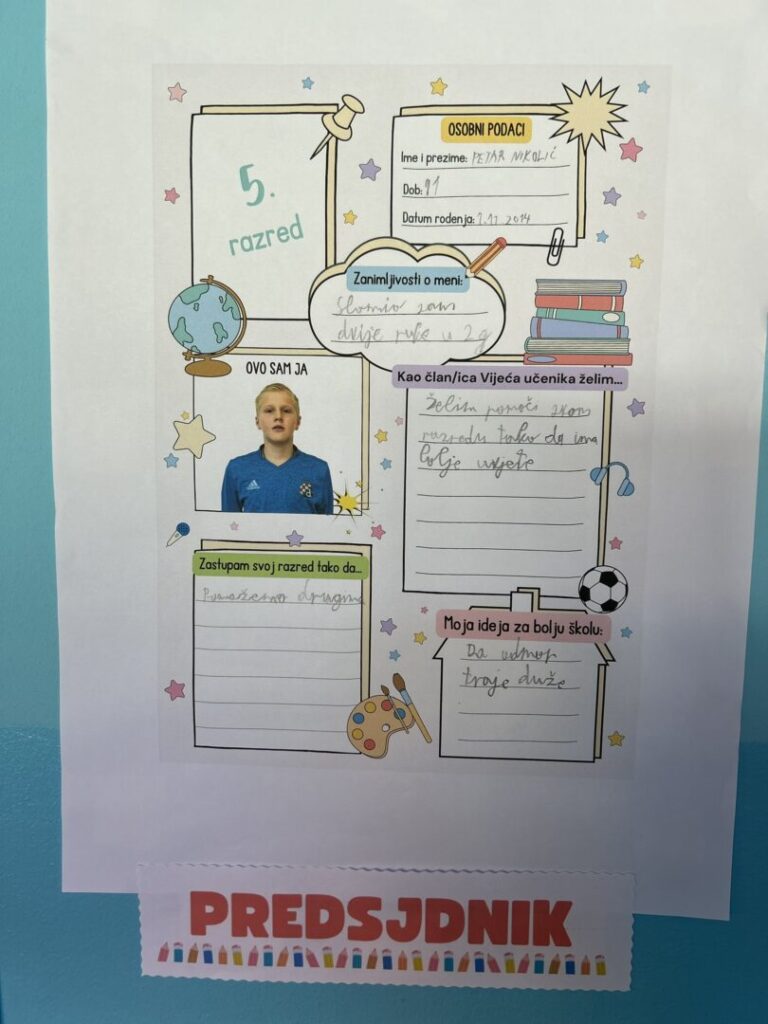 5.
razred
OSOBNI PODACI
Ime i prezime: PETAR NIKOLIĆ
Dob: 11
Datum rođenja: 1.11 2014
Zanimljivosti o meni:
Slomio sam
dvije ruke u 2 g
OVO SAM JA
Kao član/ica Vijeća učenika želim...
Želim pomoći svom
razredu tako da ima
bolje uvjete
Zastupam svoj razred tako da...
Pomažemo drugima
Moja ideja za bolju školu:
Da odmor
traje duže
PREDSJDNIK